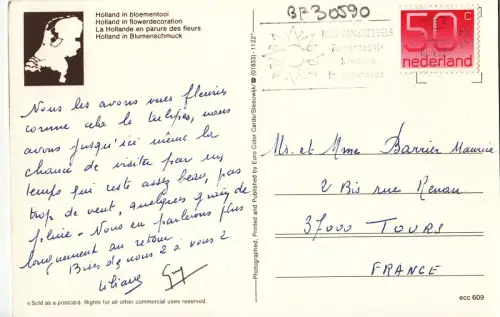 Holland in bloementooi
Holland in flowerdecoration
La Hollande en parure des fleurs
Holland in Blumenschmuck
BF30590
50 c
nederland
Nous les avons vues fleuries
comme cela le tulipes, nous
avons jusqu'ici même la
chance de visiter par un
temps qui reste assez beau, pas
trop de vent, quelques gouttes de
pluie. Nous en parlerons plus
longuement au retour.
Bises de nous 2 à vous 2
Liliane Guy
Mr. et Mme Barrier Maurice
2 Bis rue Renan
37000 TOURS
FRANCE
Photographed, Printed and Published by Euro Color Cards/Sleeuwijk/☎ (01833) - 1122*
Sold as a postcard. Rights for all other commercial uses reserved.
ecc 609